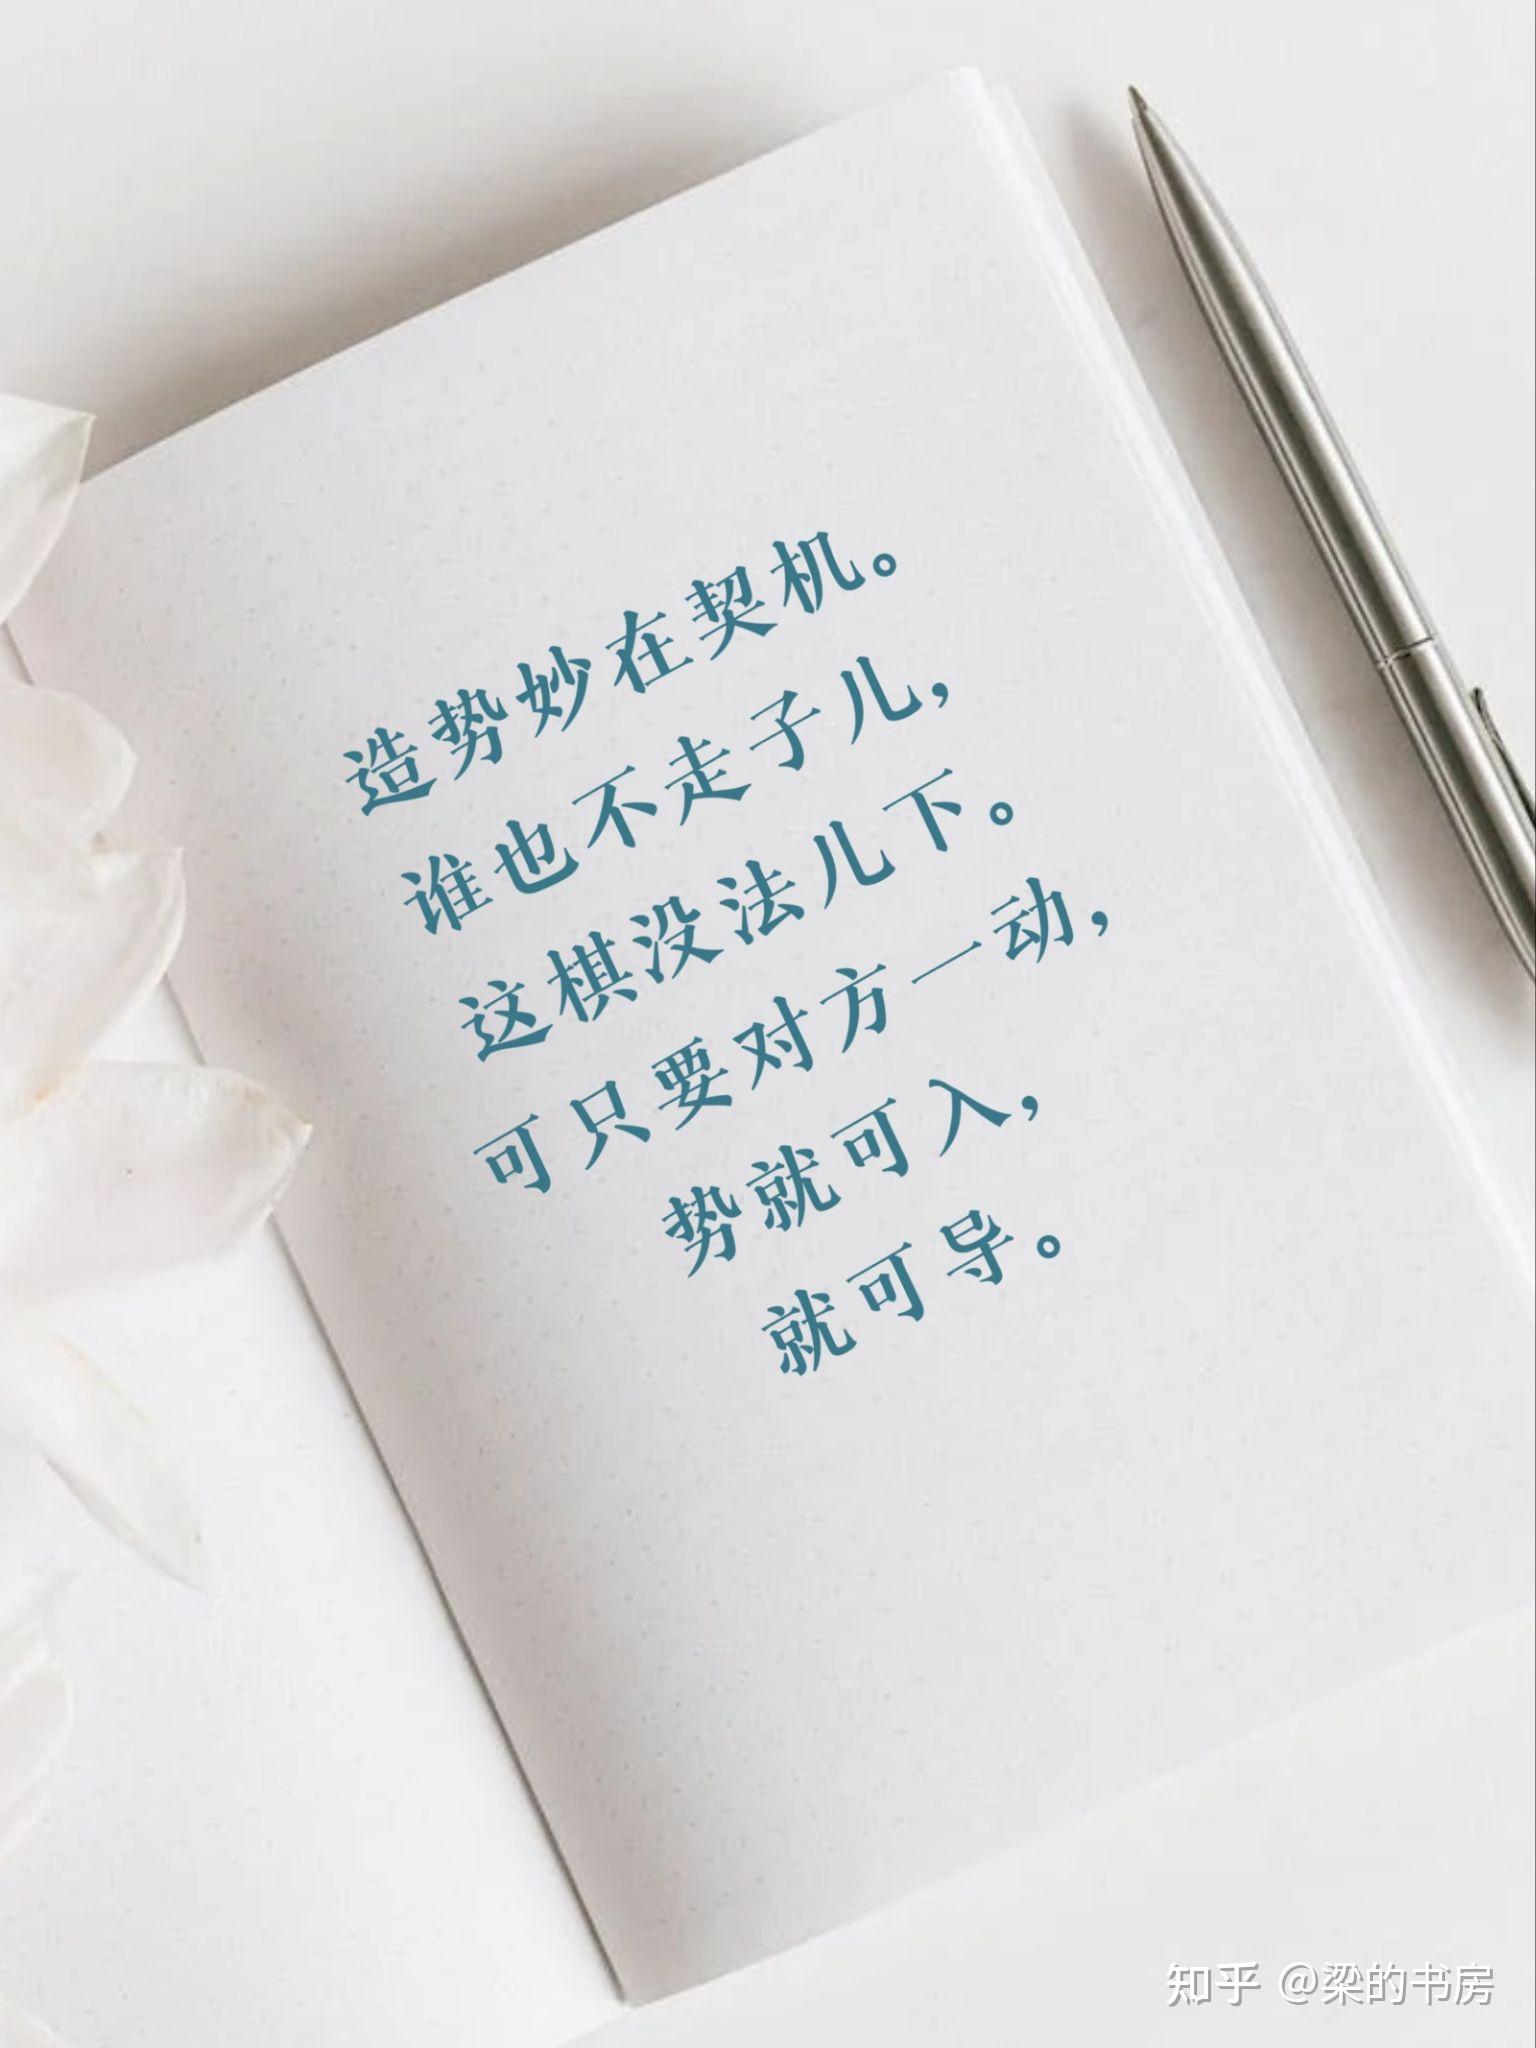 造势妙在契机。
谁也不走子儿，
这棋没法儿下。
可只要对方一动，
势就可入，
就可导。
知乎 @梁的书房